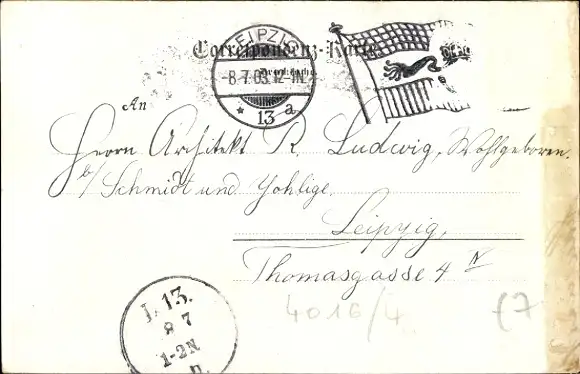 Correspondenz-Karte
LEIPZIG
-8.7.03.12-1N.
* 13 a
An
Herrn Architekt R. Ludwig, Wohlgeboren.
b/ Schmidt und Johlige.
Leipzig,
Thomasgasse 4 IV
4016/4
(7
J. 13.
8 7
1-2N
n.